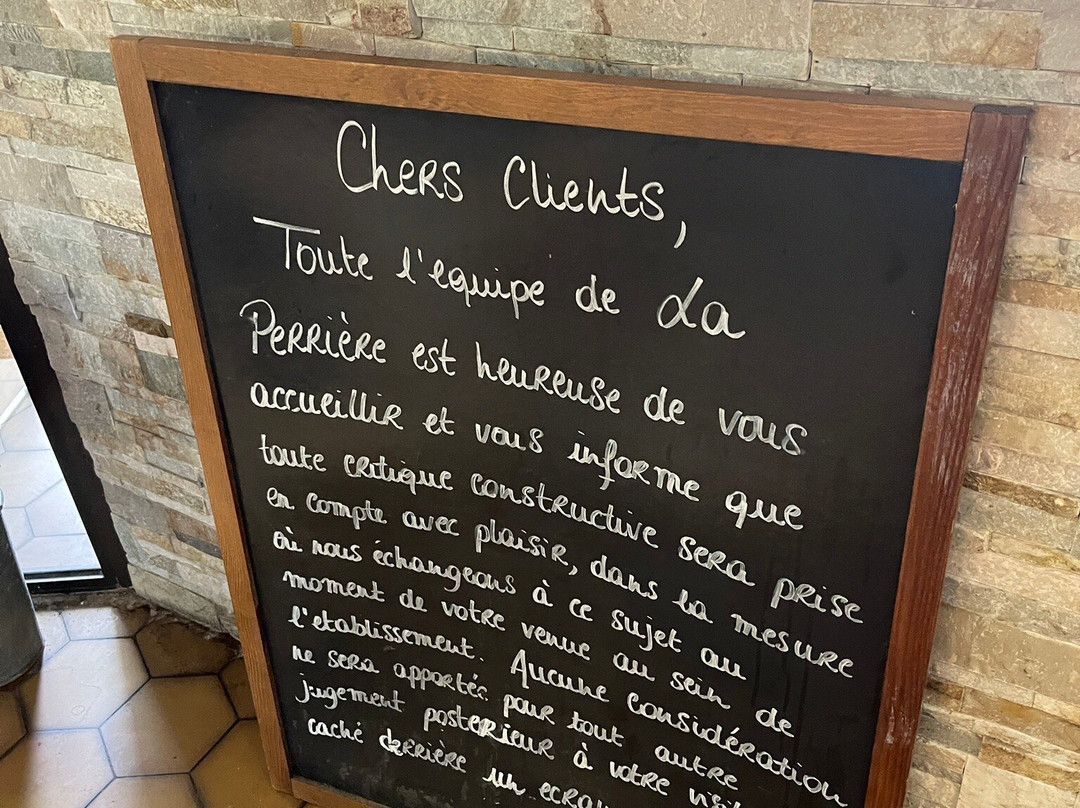 Chers Clients,
Toute l'equipe de La
Perrière est heureuse de vous
accueillir et vous informe que
toute critique constructive sera prise
en compte avec plaisir, dans la mesure
où nous échangeons à ce sujet au
moment de votre venue au sein de
l'etablissement. Aucune considération
ne sera apportée pour tout autre
jugement posterieur à votre
caché derrière un